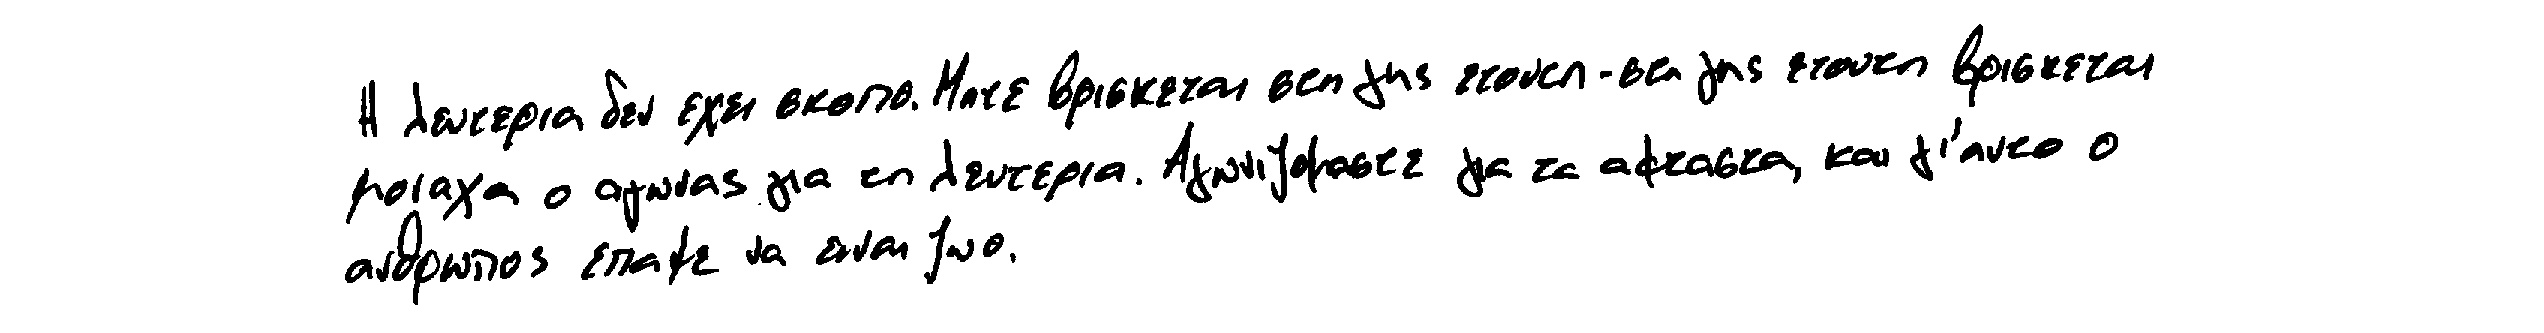 Η λευτερια δεν εχει σκοπο. Μητε βρισκεται στη γης ετουτη - στη γης ετουτη βρισκεται
μοιαχα ο αγωνας για τη λευτερια. Αγωνιζομαστε για τα αφταστα, και γι' αυτο ο
ανθρωπος επαψε να ειναι ζωο.